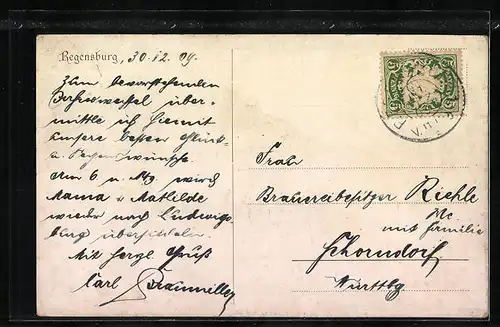 Regensburg, 30.12.09.
Zum bevorstehenden
Jahrwechsel über-
mittle ich hiermit
unsere besten Glück-
u. Segenswünsche.
Am 6 u. Mg. wird
Mama u. Mathilde
wieder nach Ludwigs-
burg übersiedeln.
Mit hergl. Gruß
Carl
5 5
Frau
Brauereibesitzer Riehle
mit Familie
Schorndorf
Württbg